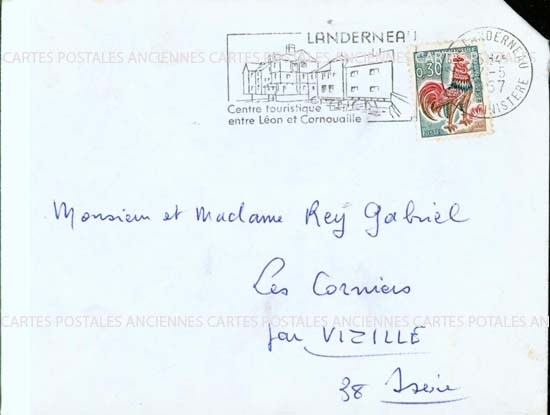 LANDERNEAU
Centre touristique
entre Léon et Cornouaille
0,30
LANDERNEAU
FINISTERE
CARTES POSTALES ANCIENNES CARTES POSTALES ANCIENNES CARTES
Monsieur et Madame Rey Gabriel
Les Corniers
CARTES POSTALES ANCIENNES CARTES POSTALES ANCIENNES CARTES POTALES ANCIENNES
par VIZILLE
38 Isère